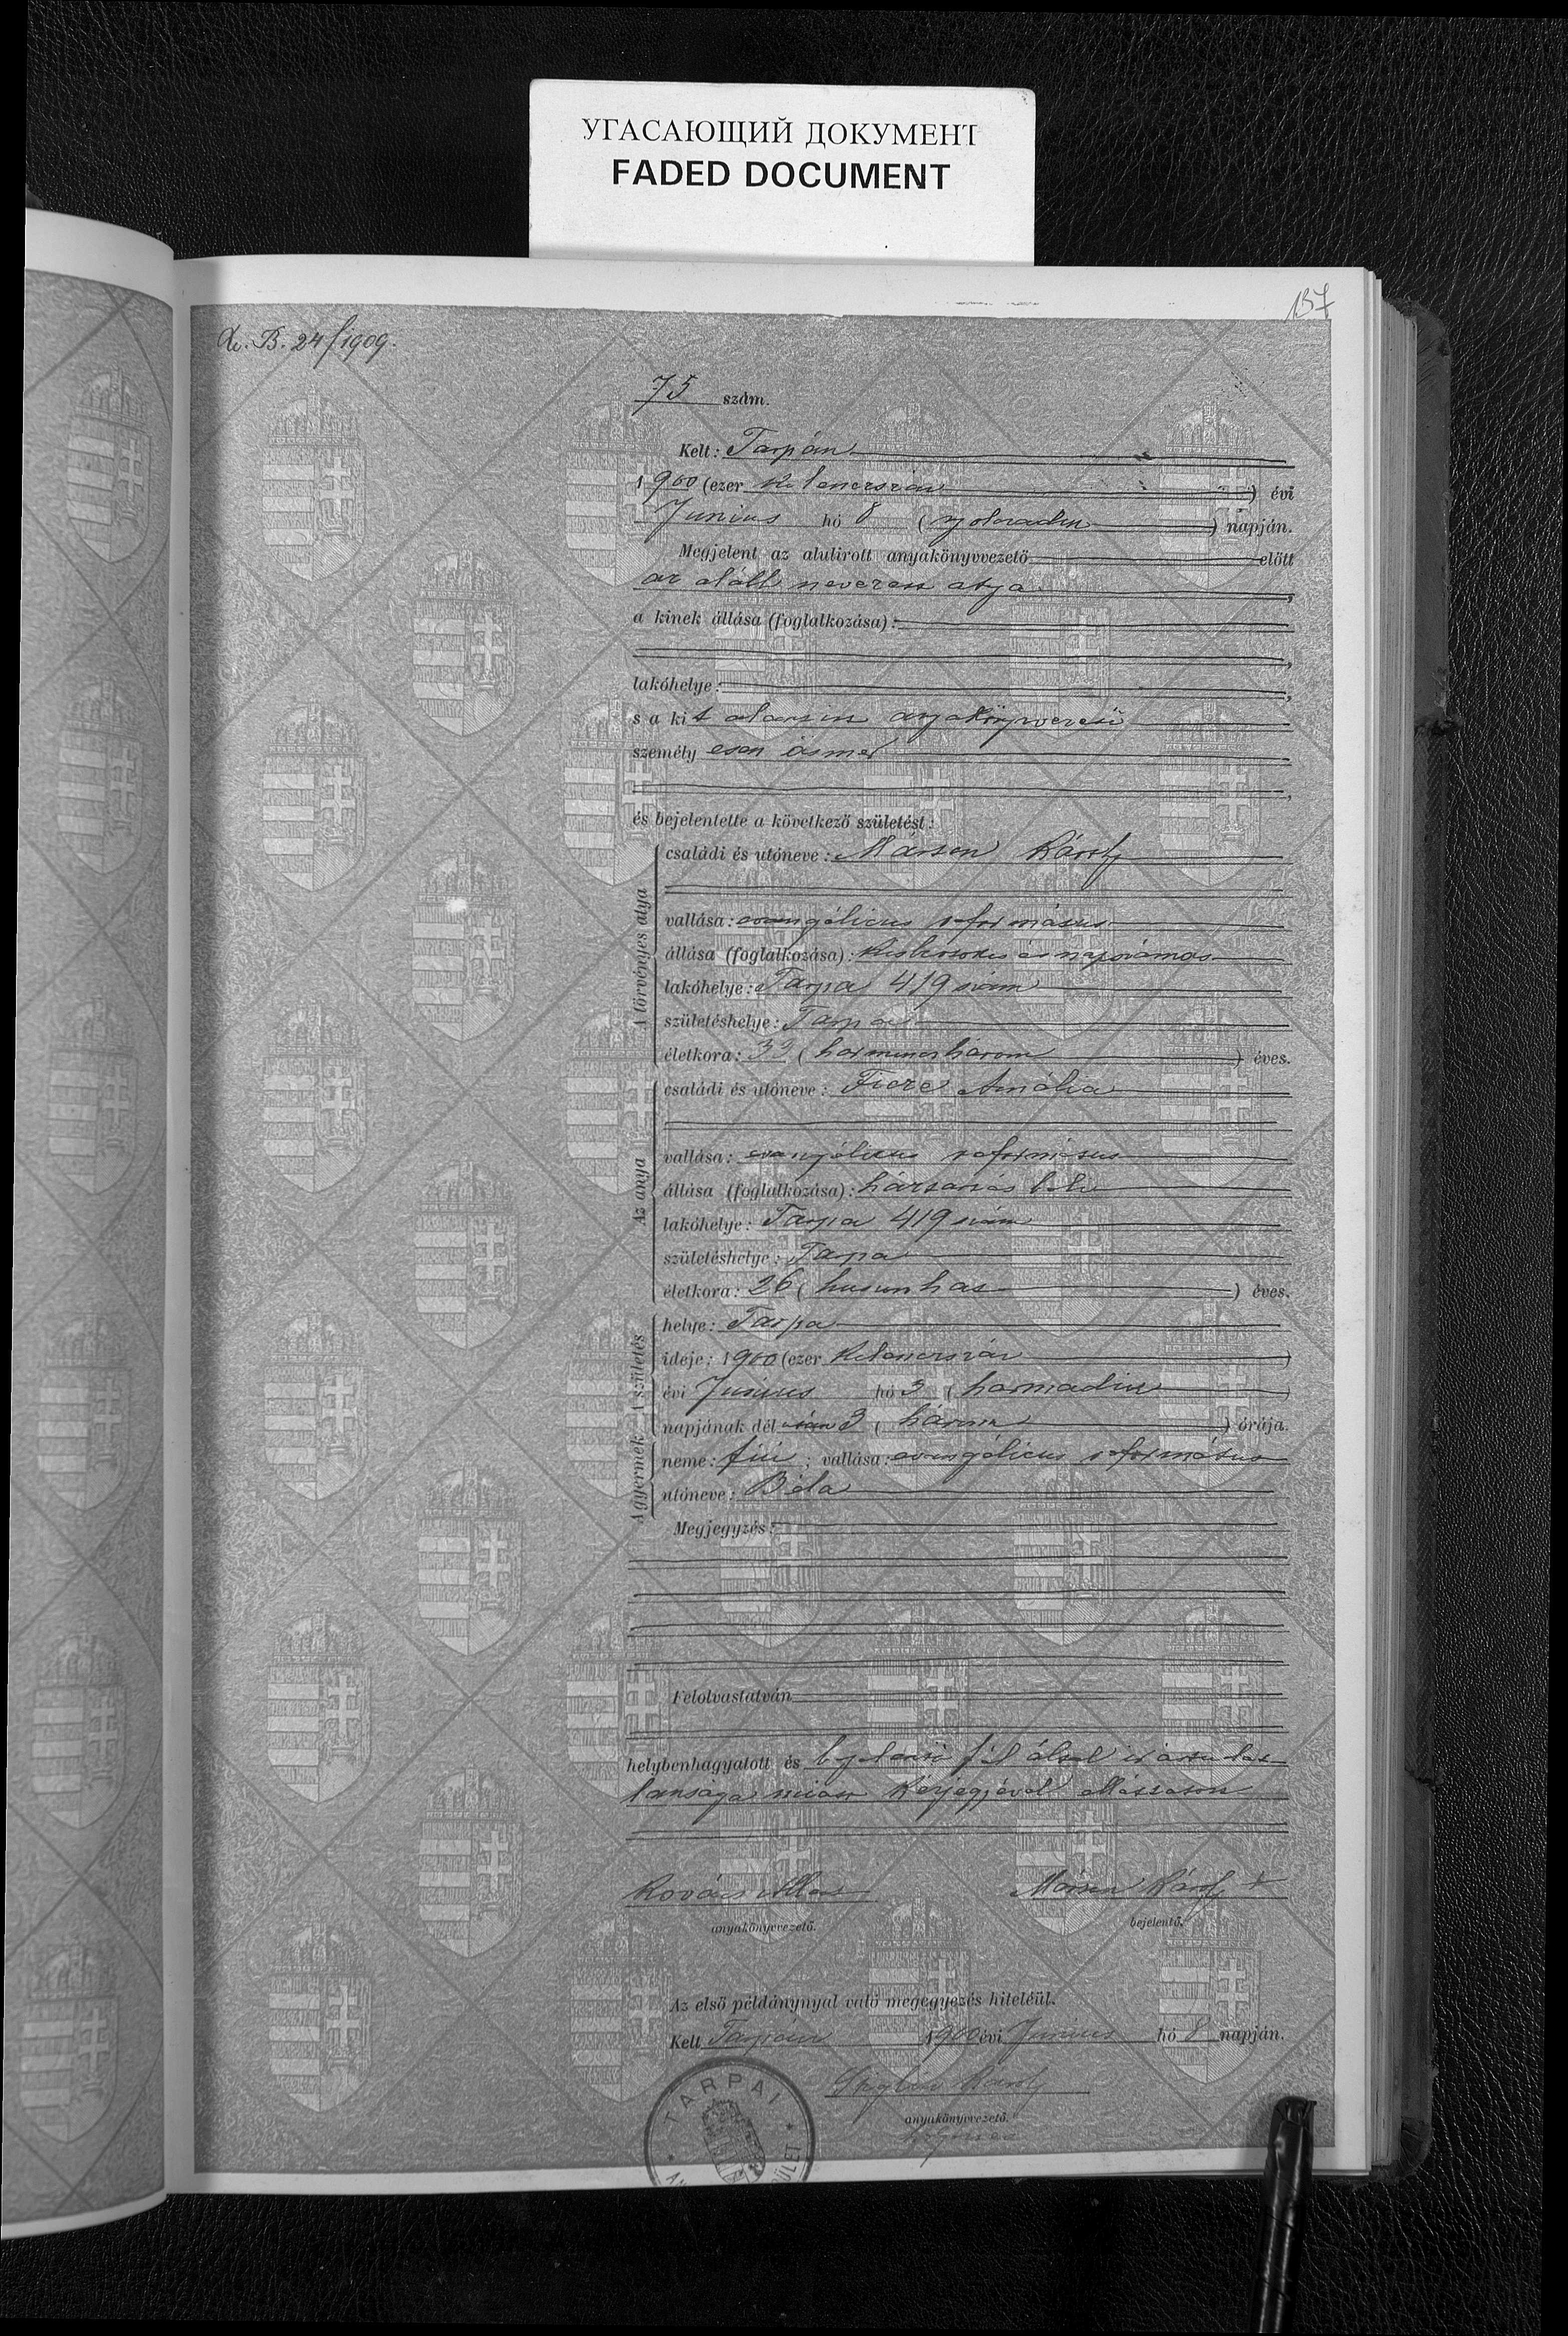 УГАСАЮЩИЙ ДОКУМЕНТ
FADED DOCUMENT
137
B. 24/1909.
75 szám.
Kelt: Tarpán
1900 (ezer kilenczszáz) évi
Junius hó 8 (nyolczadik) napján.
Megjelent az alulirott anyakönyvvezető előtt
az alább nevezett atya,
a kinek állása (foglalkozása):
lakóhelye:
s a kit alantirt anyakönyvvezető
személyesen ösmer
és bejelentette a következő születést:
A törvényes atya
családi és utóneve: Károly
vallása: evangélicus református
állása (foglalkozása): és napszámos
lakóhelye: Tarpa 419 szám
születéshelye: Tarpa
életkora: 33 (harminczhárom) éves.
Az anya
családi és utóneve: Amália
vallása: evangélicus református
állása (foglalkozása): háztartásbeli
lakóhelye: Tarpa 419 szám
születéshelye: Tarpa
életkora: 26 (huszonhat) éves.
A születés
helye: Tarpa
ideje: 1900 (ezer kilenczszáz)
évi Junius hó 3 (harmadik)
napjának délután 3 (három) órája.
A gyermek
neme: fiú; vallása: evangélicus református
utóneve: Béla
Megjegyzés:
Felolvastatván
helybenhagyatott és bejelentő fél által irástudat-
lansága miatt kézjegyével elláttatott
Kovács
Károly X
anyakönyvvezető.
bejelentő.
Az első példánynyal való megegyezés hiteléül.
Kelt Tarpán 1900 évi Junius hó 8 napján.
Károly
anyakönyvvezető.
TARPAI